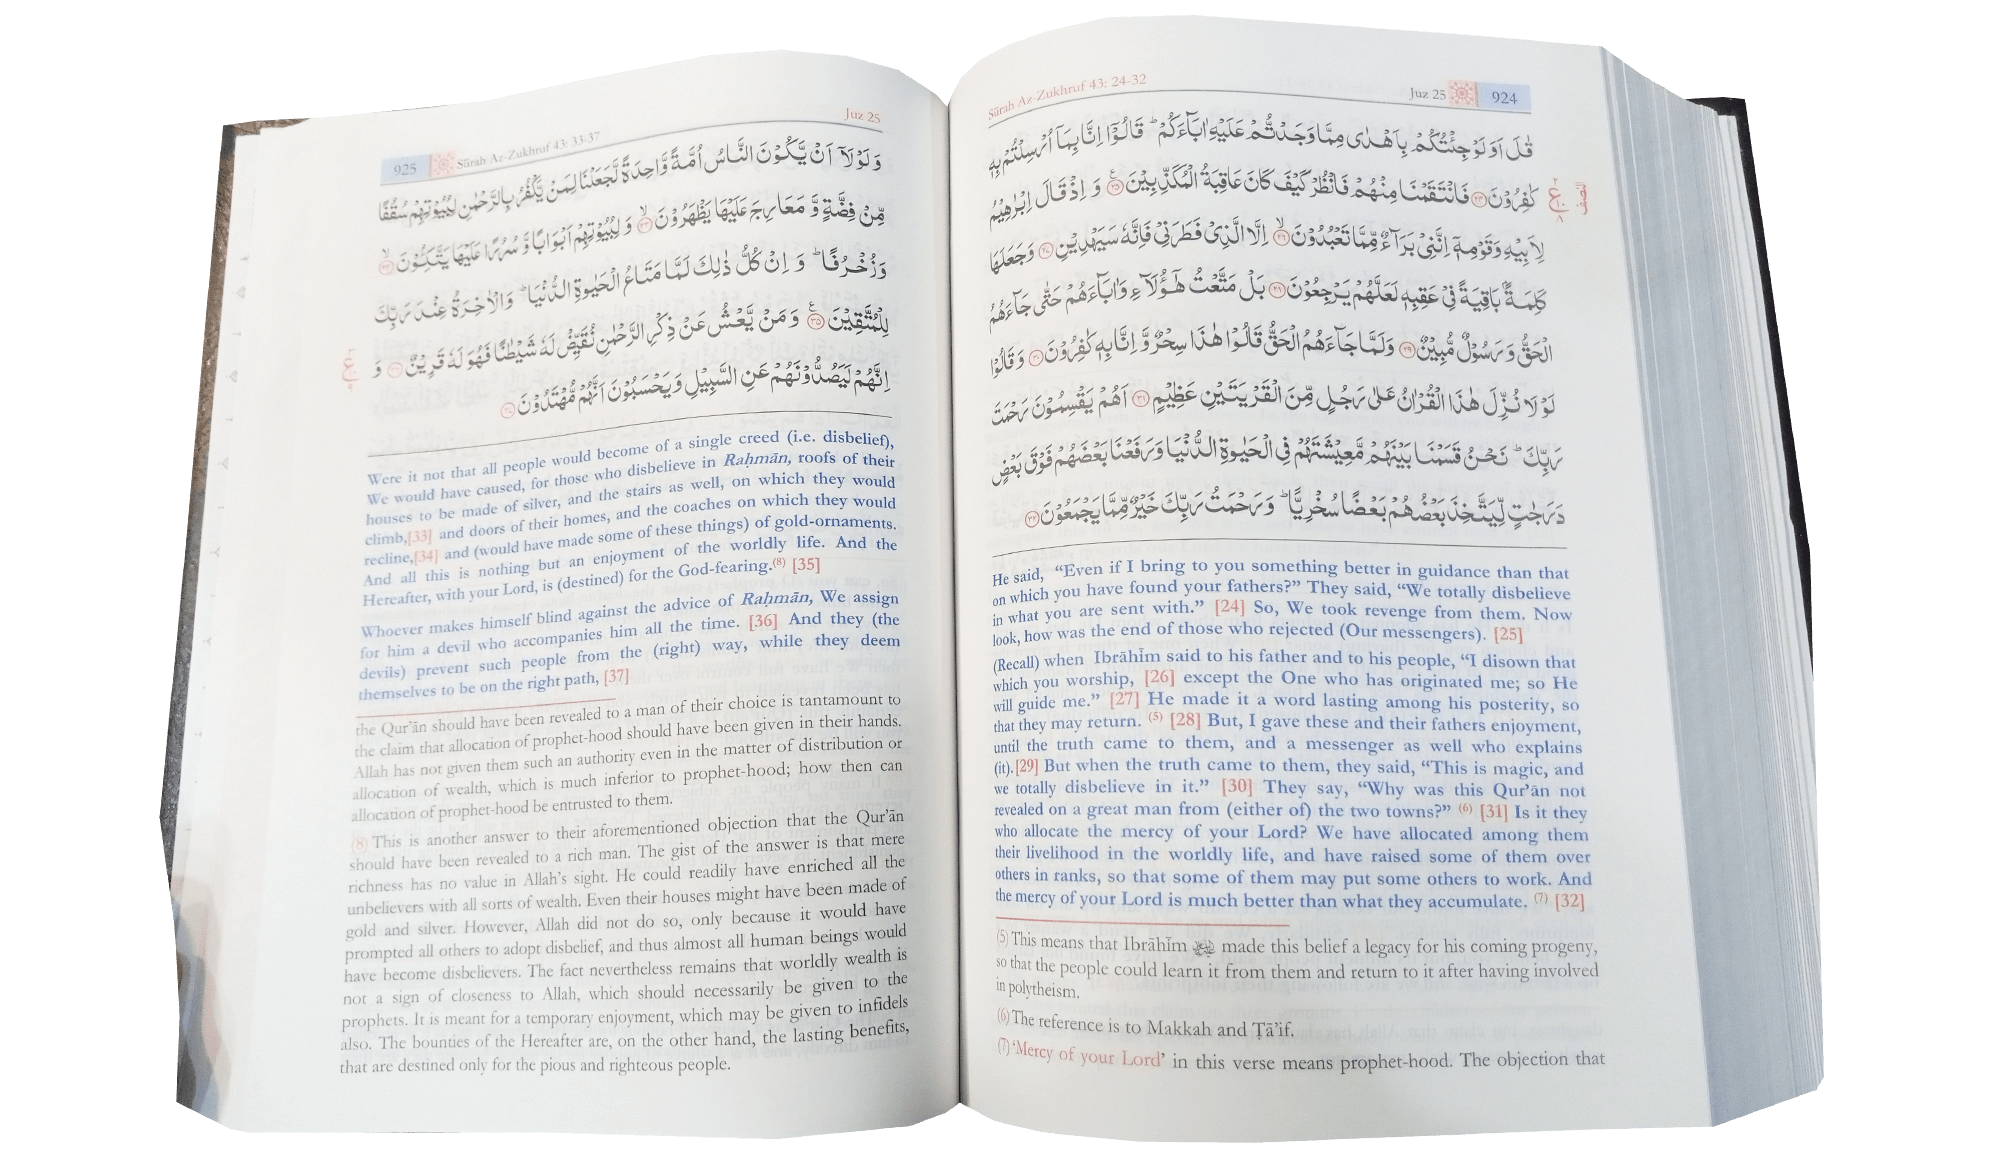 Sūrah Az-Zukhruf 43: 24-32
Juz 25 924
قٰلَ اَوَلَوْ جِئْتُكُمْ بِاَهْدٰى مِمَّا وَجَدْتُّمْ عَلَيْهِ اٰبَآءَكُمْ ؕ قَالُوْۤا اِنَّا بِمَاۤ اُرْسِلْتُمْ بِهٖ
كٰفِرُوْنَ ﴿۲۴﴾ فَانْتَقَمْنَا مِنْهُمْ فَانْظُرْ كَيْفَ كَانَ عَاقِبَةُ الْمُكَذِّبِيْنَ ﴿۲۵﴾ وَ اِذْ قَالَ اِبْرٰهِيْمُ
لِاَبِيْهِ وَقَوْمِهٖۤ اِنَّنِيْ بَرَآءٌ مِّمَّا تَعْبُدُوْنَ ﴿۲۶﴾ اِلَّا الَّذِيْ فَطَرَنِيْ فَاِنَّهٗ سَيَهْدِيْنِ ﴿۲۷﴾ وَجَعَلَهَا
كَلِمَةًۢ بَاقِيَةً فِيْ عَقِبِهٖ لَعَلَّهُمْ يَرْجِعُوْنَ ﴿۲۸﴾ بَلْ مَتَّعْتُ هٰۤؤُلَآءِ وَاٰبَآءَهُمْ حَتّٰى جَآءَهُمُ
الْحَقُّ وَ رَسُوْلٌ مُّبِيْنٌ ﴿۲۹﴾ وَلَمَّا جَآءَهُمُ الْحَقُّ قَالُوْا هٰذَا سِحْرٌ وَّ اِنَّا بِهٖ كٰفِرُوْنَ ﴿۳۰﴾ وَقَالُوْا
لَوْ لَا نُزِّلَ هٰذَا الْقُرْاٰنُ عَلٰى رَجُلٍ مِّنَ الْقَرْيَتَيْنِ عَظِيْمٍ ﴿۳۱﴾ اَهُمْ يَقْسِمُوْنَ رَحْمَتَ
رَبِّكَ ؕ نَحْنُ قَسَمْنَا بَيْنَهُمْ مَّعِيْشَتَهُمْ فِي الْحَيٰوةِ الدُّنْيَا وَرَفَعْنَا بَعْضَهُمْ فَوْقَ بَعْضٍ
دَرَجٰتٍ لِّيَتَّخِذَ بَعْضُهُمْ بَعْضًا سُخْرِيًّا ؕ وَرَحْمَتُ رَبِّكَ خَيْرٌ مِّمَّا يَجْمَعُوْنَ ﴿۳۲﴾
He said, “Even if I bring to you something better in guidance than that
on which you have found your fathers?” They said, “We totally disbelieve
in what you are sent with.” [24] So, We took revenge from them. Now
look, how was the end of those who rejected (Our messengers). [25]
(Recall) when Ibrāhīm said to his father and to his people, “I disown that
which you worship, [26] except the One who has originated me; so He
will guide me.” [27] He made it a word lasting among his posterity, so
that they may return. (5) [28] But, I gave these and their fathers enjoyment,
until the truth came to them, and a messenger as well who explains
(it).[29] But when the truth came to them, they said, “This is magic, and
we totally disbelieve in it.” [30] They say, “Why was this Qur’ān not
revealed on a great man from (either of) the two towns?” (6) [31] Is it they
who allocate the mercy of your Lord? We have allocated among them
their livelihood in the worldly life, and have raised some of them over
others in ranks, so that some of them may put some others to work. And
the mercy of your Lord is much better than what they accumulate. (7) [32]
(5) This means that Ibrāhīm made this belief a legacy for his coming progeny,
so that the people could learn it from them and return to it after having involved
in polytheism.
(6) The reference is to Makkah and Ṭā’if.
(7) ‘Mercy of your Lord’ in this verse means prophet-hood. The objection that
925 Sūrah Az-Zukhruf 43: 33-37
Juz 25
وَ لَوْ لَاۤ اَنْ يَّكُوْنَ النَّاسُ اُمَّةً وَّاحِدَةً لَّجَعَلْنَا لِمَنْ يَّكْفُرُ بِالرَّحْمٰنِ لِبُيُوْتِهِمْ سُقُفًا
مِّنْ فِضَّةٍ وَّ مَعَارِجَ عَلَيْهَا يَظْهَرُوْنَ ﴿۳۳﴾ وَ لِبُيُوْتِهِمْ اَبْوَابًا وَّ سُرُرًا عَلَيْهَا يَتَّكِـُٔوْنَ ﴿۳۴﴾
وَزُخْرُفًا ؕ وَ اِنْ كُلُّ ذٰلِكَ لَمَّا مَتَاعُ الْحَيٰوةِ الدُّنْيَا ؕ وَالْاٰخِرَةُ عِنْدَ رَبِّكَ
لِلْمُتَّقِيْنَ ﴿۳۵﴾ وَ مَنْ يَّعْشُ عَنْ ذِكْرِ الرَّحْمٰنِ نُقَيِّضْ لَهٗ شَيْطٰنًا فَهُوَ لَهٗ قَرِيْنٌ ﴿۳۶﴾ وَ
اِنَّهُمْ لَيَصُدُّوْنَهُمْ عَنِ السَّبِيْلِ وَ يَحْسَبُوْنَ اَنَّهُمْ مُّهْتَدُوْنَ ﴿۳۷﴾
Were it not that all people would become of a single creed (i.e. disbelief),
We would have caused, for those who disbelieve in Raḥmān, roofs of their
houses to be made of silver, and the stairs as well, on which they would
climb,[33] and doors of their homes, and the coaches on which they would
recline,[34] and (would have made some of these things) of gold-ornaments.
And all this is nothing but an enjoyment of the worldly life. And the
Hereafter, with your Lord, is (destined) for the God-fearing.(8) [35]
Whoever makes himself blind against the advice of Raḥmān, We assign
for him a devil who accompanies him all the time. [36] And they (the
devils) prevent such people from the (right) way, while they deem
themselves to be on the right path, [37]
the Qur’ān should have been revealed to a man of their choice is tantamount to
the claim that allocation of prophet-hood should have been given in their hands.
Allah has not given them such an authority even in the matter of distribution or
allocation of wealth, which is much inferior to prophet-hood; how then can
allocation of prophet-hood be entrusted to them.
(8) This is another answer to their aforementioned objection that the Qur’ān
should have been revealed to a rich man. The gist of the answer is that mere
richness has no value in Allah’s sight. He could readily have enriched all the
unbelievers with all sorts of wealth. Even their houses might have been made of
gold and silver. However, Allah did not do so, only because it would have
prompted all others to adopt disbelief, and thus almost all human beings would
have become disbelievers. The fact nevertheless remains that worldly wealth is
not a sign of closeness to Allah, which should necessarily be given to the
prophets. It is meant for a temporary enjoyment, which may be given to infidels
also. The bounties of the Hereafter are, on the other hand, the lasting benefits,
that are destined only for the pious and righteous people.